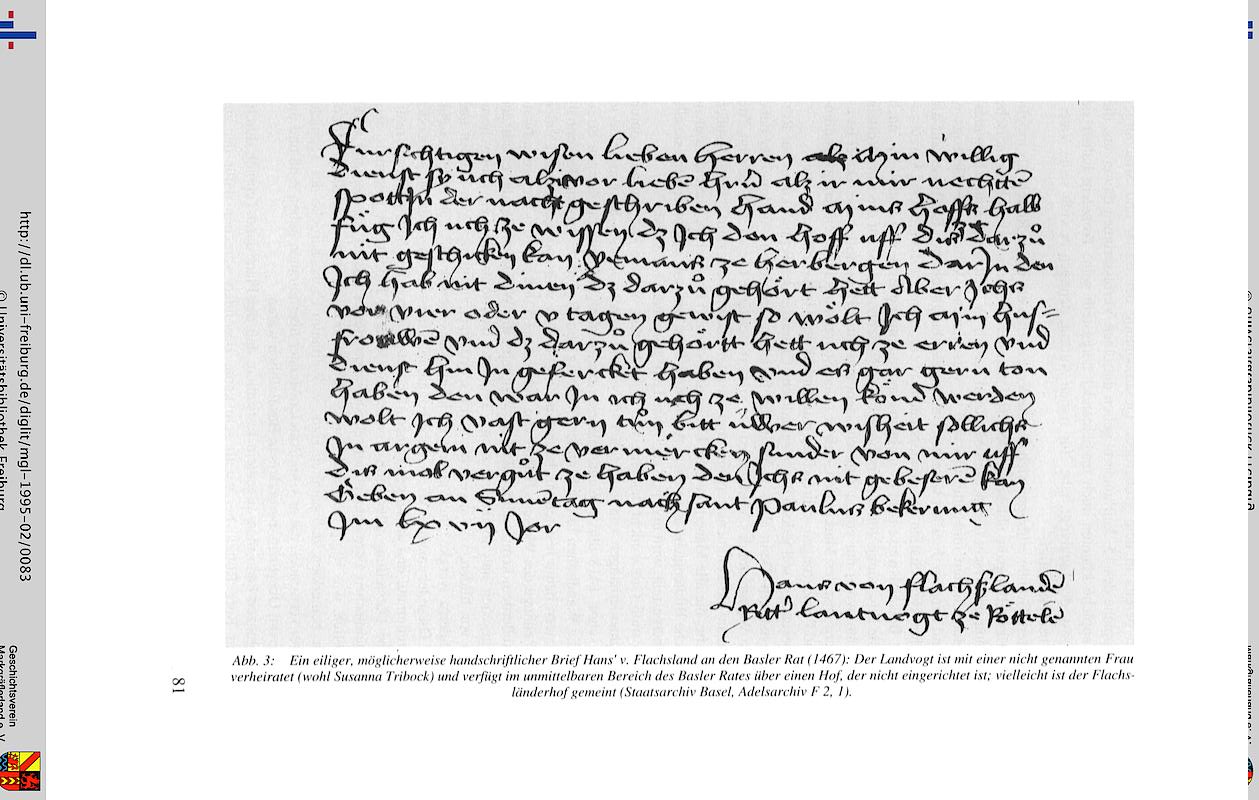 Fursichtigen wisen lieben herren als min willig
dienst sy uch alzitvor lieben hrn als ir mir nechtte
spott in der nacht geschriben hand mins hoffs halb
füg Ich uch ze wissen dz Ich den hoff uff dis darzů
nit geschicken kan yemans ze herbergen dar In den
Ich hab nit dinen dz darzů gehört hett Aber Ichs
vor vier oder v tagen gewist so wölt Ich min hus-
frowen vnd dz darzů gehörtt hett uch ze erren vnd
dienst hin In gefercket haben vnd es gar gern ton
haben den war In ich uch ze willen könd werden
wolt Ich vast gern tůn bitt üwer wisheit sollichs
In argem nit ze vermercken sunder von mir uff
dis mol vergůt ze haben den Ichs nit gebesseren kan
Geben an Sunentag nach sant Paulus bekerung
Im lxvij Jor
Hans von flachslanden
Ritter lantvogt ze Röttelen
Abb. 3: Ein eiliger, möglicherweise handschriftlicher Brief Hans' v. Flachsland an den Basler Rat (1467): Der Landvogt ist mit einer nicht genannten Frau
verheiratet (wohl Susanna Tribock) und verfügt im unmittelbaren Bereich des Basler Rates über einen Hof, der nicht eingerichtet ist; vielleicht ist der Flachs-
länderhof gemeint (Staatsarchiv Basel, Adelsarchiv F 2, 1).
81
http://dl.ub.uni-freiburg.de/diglit/mgl-1995-02/0083
© Universitätsbibliothek Freiburg
Geschichtsverein
Markgräflerland e. V.